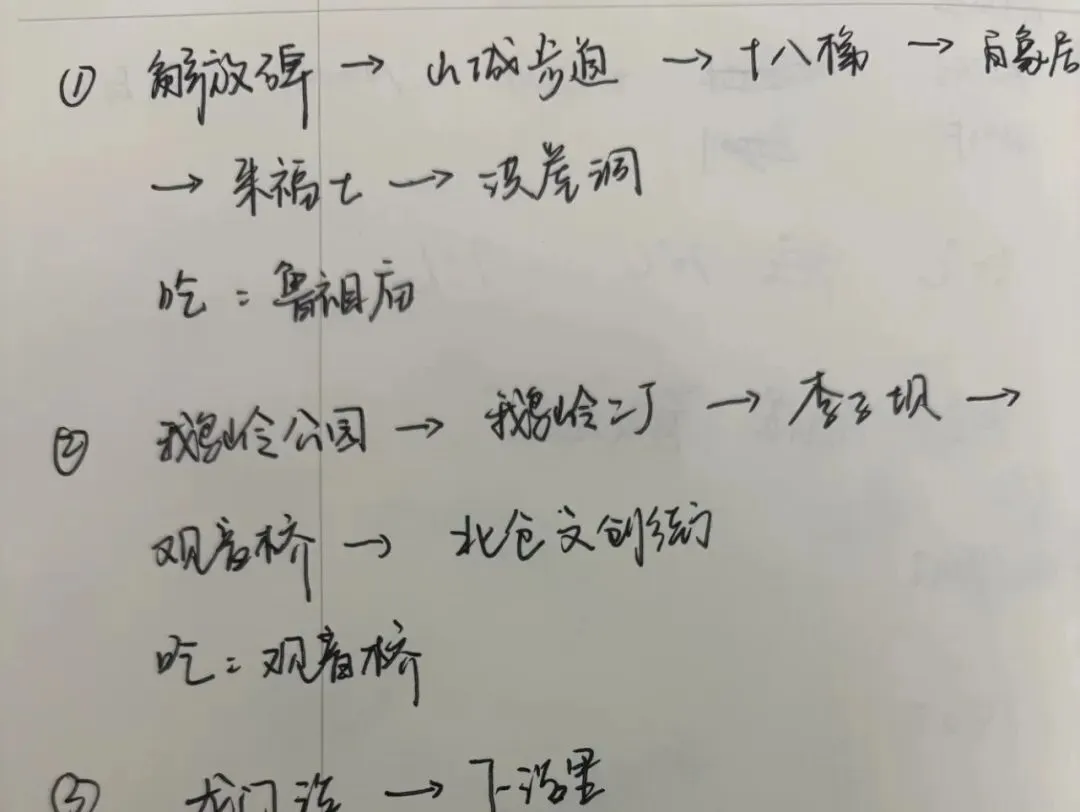 ① 解放碑 → 山城步道 → 十八梯 → 白象居
→ 来福士 → 洪崖洞
吃：鲁祖庙
② 鹅岭公园 → 鹅岭二厂 → 李子坝 →
观音桥 → 北仓文创街
吃：观音桥
③ 龙门浩 → 下浩里